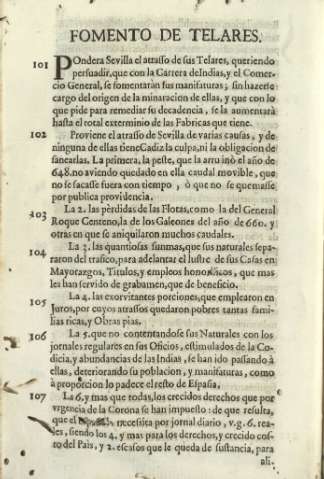 FOMENTO DE TELARES.
101 POndera Sevilla el atrasso de sus Telares, queriendo
persuadir, que con la Carrera deIndias, y el Comer-
cio General, se fomentarán sus manifaturas, sin hazerse
cargo del origen de la minaracion de ellas, y que con lo
que pide para remediar su decadencia, se la aumentará
hasta el total exterminio de las Fabricas que tiene.
102 Proviene el atrasso de Sevilla de varias causas, y de
ninguna de ellas tiene Cadiz la culpa, ni la obligacion de
sanearlas. La primera, la peste, que la arruinò el año de
648. no aviendo quedado en ella caudal movible, que
no se sacasse fuera con tiempo, ò que no se quemasse
por publica providencia.
103 La 2. las pèrdidas de las Flotas, como la del General
Roque Centeno, la de los Galeones del año de 660. y
otras en que se aniquilaron muchos caudales.
104 La 3. las quantiosas summas, que sus naturales sepa-
raron del trafico, para adelantar el lustre de sus Casas en
Mayorazgos, Titulos, y empleos honorificos, que mas
les han servido de grabamen, que de beneficio.
105 La 4. las exorvitantes porciones, que emplearon en
Juros, por cuyos atrassos quedaron pobres tantas fami-
lias ricas, y Obras pias.
106 La 5. que no contentandose sus Naturales con los
jornales regulares en sus Oficios, estimulados de la Co-
dicia, y abundancias de las Indias, se han ido passando à
ellas, deteriorando su poblacion, y manifaturas, como
à proporcion lo padece el resto de España.
107 La 6. y mas que todas, los crecidos derechos que por
vrgencia de la Corona se han impuesto: de que resulta,
que el necessita por jornal diario, v.g. 6. rea-
les, siendo los 4. y mas para los derechos, y crecido cos-
to del Pais, y 2. escasos que le queda de sustancia, para
ali-